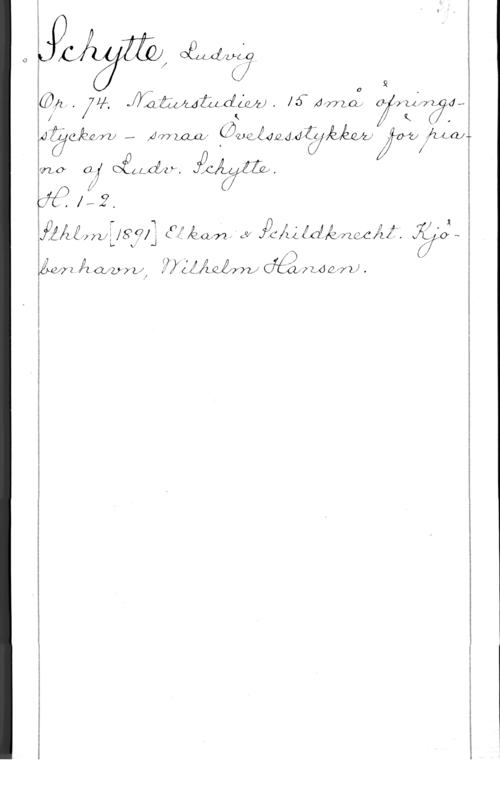 Schytte, Ludvig
Op. 74. Naturstudier. 15 små öfnings-
stycken - smaa Övelsesstykker för pia-
no af Ludv. Schytte.
H. 1-2.
Sthlm [1891] Elkan & Schildknecht. Kjö-
benhavn, Wilhelm Hansen.